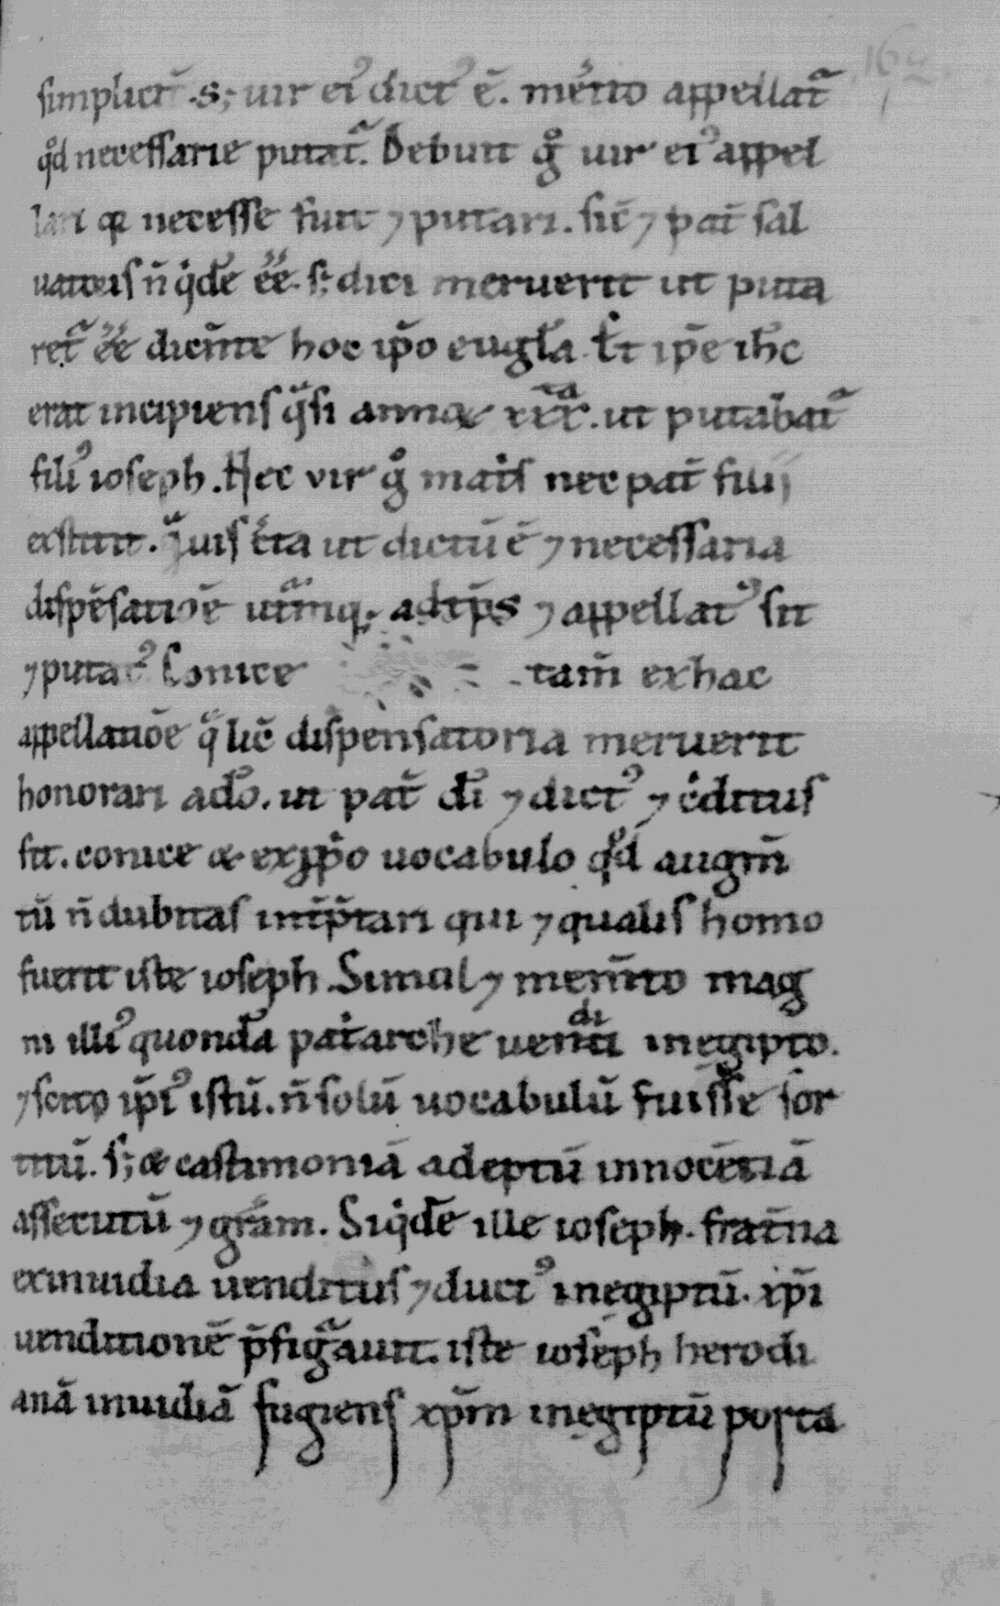 simplicit̄ .s; uir ei᷒ dict᷒ ē. merito appellat᷑
qd̊ necessarie putat᷑. Debuit g̊ uir ei᷒ appel
lari qꝛ necesse fuit ⁊ putari. sic̄ ⁊ pat̄ sal
uatoris n̄ q̇dē ēē. s; dici meruerit ut puta
ret᷑ ēē dicēte hoc ip̄o eugl̄a. Et ip̄e ih̄c
erat incipiens q̈si annoꝝ xxx. ut putabat᷑
fili᷒ ioseph. Nec vir g̊ mat̄s nec pat̄ filii
exstitit. q̈uis c̄ta ut dictū ē ⁊ necessaria
dispēsatiōe utrūq;. adep̄s ⁊ appellat᷒ sit
⁊ putat᷒ Conice tam̄ ex hac
appellatiōe q̈ lic̄ dispensatoria meruerit
honorari a dō. ut pat̄ dī ⁊ dict᷒ ⁊ c̄ditus
sit. conice & ex pp̄o uocabulo qd̊ augm̄
tū n̄ dubitas int̄p̄tari qui ⁊ qualis homo
fuerit iste ioseph. Simul ⁊ mem̄to mag
ni illi᷒ quondā pat̓arche uenditi in egipto.
⁊ scito ip̄i᷒ istū. n̄ solū uocabulū fuisse sor
titū. s; & castimoniā adeptū innocētiā
assecutū ⁊ grām. Siq̇dē ille ioseph. frat̄na
ex inuidia uenditus ⁊ duct᷒ in egiptū. xp̄i
uenditionē p̄figurauit. iste ioseph herodi
anā inuidiā fugiens xp̄m in egiptū porta